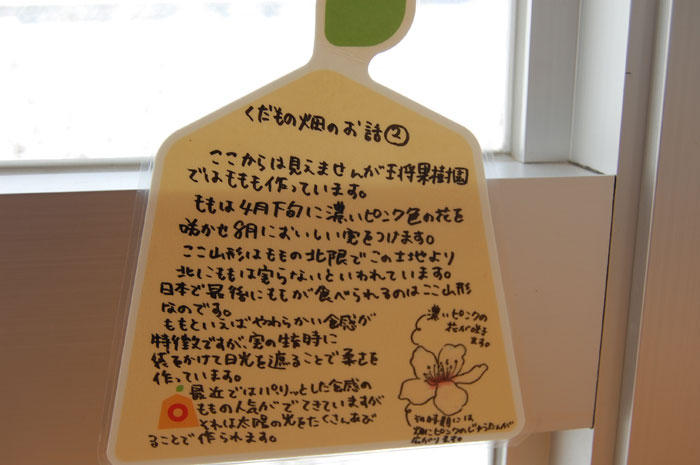 くだもの畑のお話②
ここからは見えませんが王将果樹園
ではももも作っています。
ももは4月下旬に濃いピンク色の花を
咲かせ8月においしい実をつけます。
ここ山形はももの北限でこの土地より
北にももは実らないといわれています。
日本で最後にももが食べられるのはここ山形
なのです。
ももといえばやわらかい食感が
特徴ですが、実の生育時に
袋をかけて日光を遮ることで柔さを
作っています。
最近ではパリッとした食感の
ももの人気がでてきていますが
それは太陽の光をたくさんあび
ることで作られます。
濃いピンクの
花が咲き
ます。
には
畑にピンクのじゅうたんが
広がります。